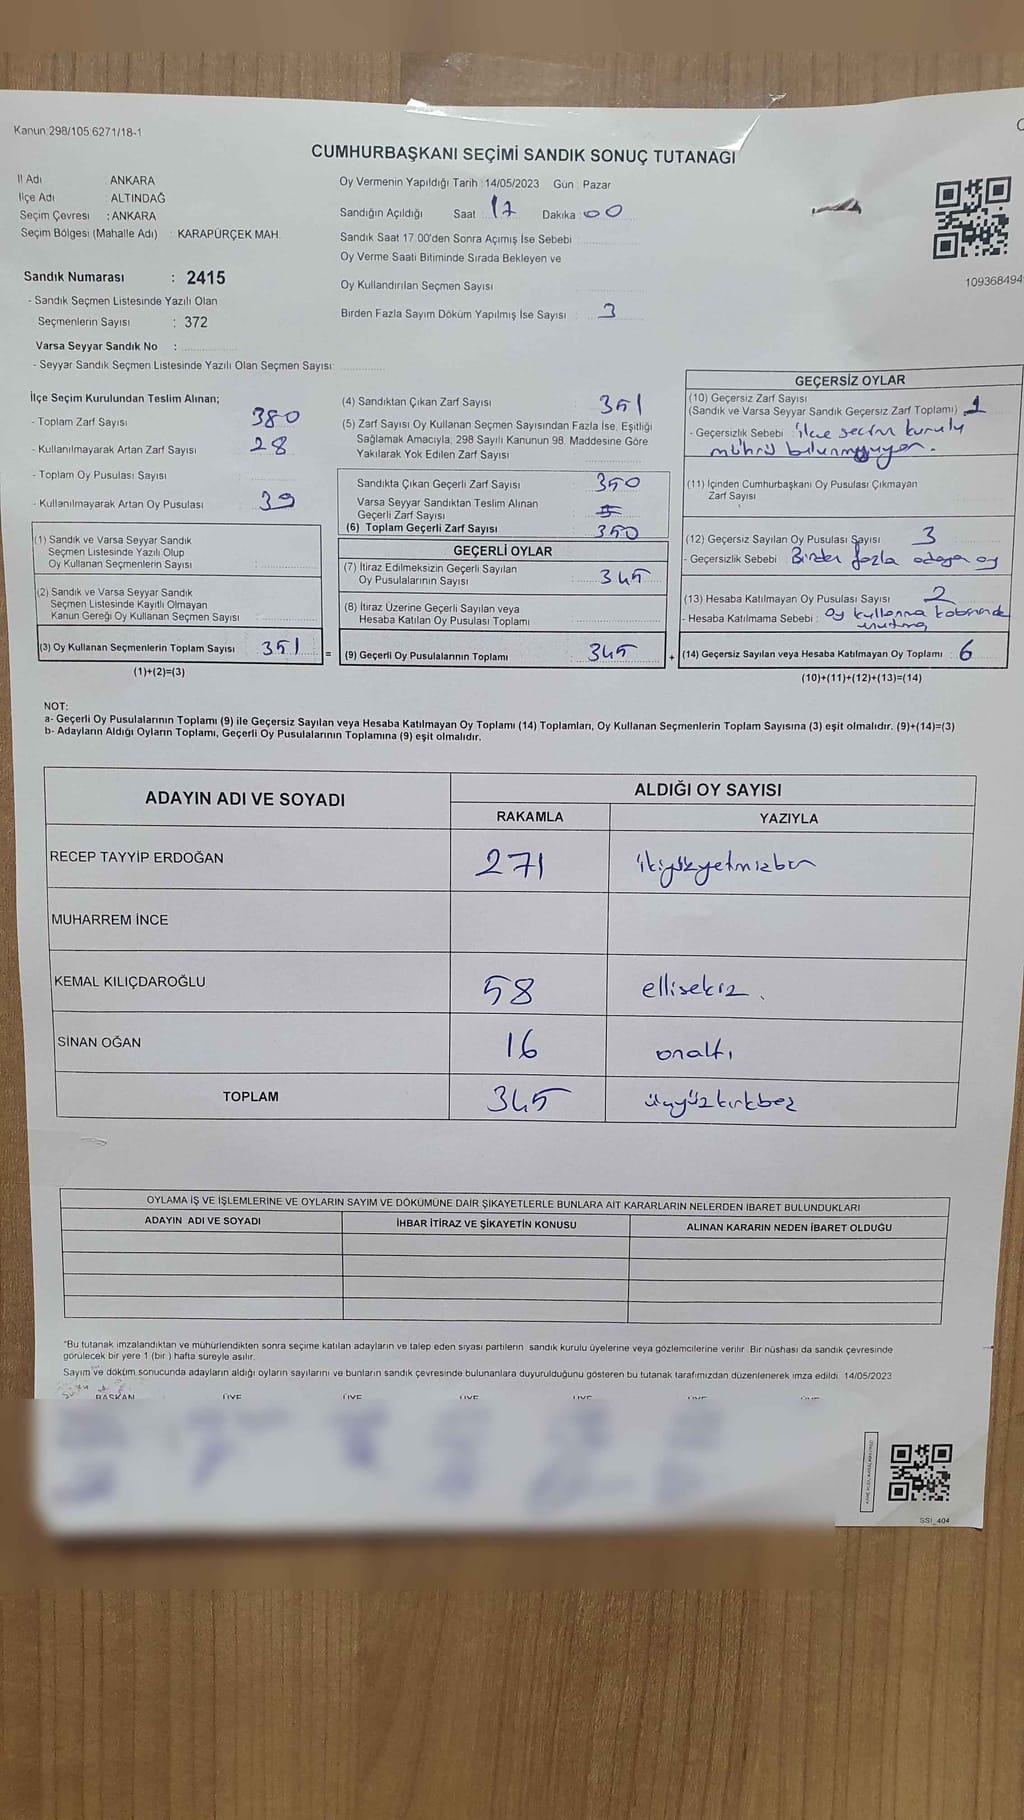 Kanun 298/105 6271/18-1
CUMHURBAŞKANI SEÇİMİ SANDIK SONUÇ TUTANAĞI
İl Adı : ANKARA
İlçe Adı : ALTINDAĞ
Seçim Çevresi : ANKARA
Seçim Bölgesi (Mahalle Adı) : KARAPÜRÇEK MAH.
Oy Vermenin Yapıldığı Tarih :14/05/2023 Gün : Pazar
Sandığın Açıldığı Saat : 17 Dakika : 00
Sandık Saat 17 00'den Sonra Açımış İse Sebebi
Oy Verme Saati Bitiminde Sırada Bekleyen ve
Oy Kullandırılan Seçmen Sayısı
Birden Fazla Sayım Döküm Yapılmış İse Sayısı : 3
109368494
Sandık Numarası : 2415
- Sandık Seçmen Listesinde Yazılı Olan
Seçmenlerin Sayısı : 372
Varsa Seyyar Sandık No :
- Seyyar Sandık Seçmen Listesinde Yazılı Olan Seçmen Sayısı:
İlçe Seçim Kurulundan Teslim Alınan;
- Toplam Zarf Sayısı 380
- Kullanılmayarak Artan Zarf Sayısı 28
- Toplam Oy Pusulası Sayısı
- Kullanılmayarak Artan Oy Pusulası 39
(1) Sandık ve Varsa Seyyar Sandık
Seçmen Listesinde Yazılı Olup
Oy Kullanan Seçmenlerin Sayısı
(2) Sandık ve Varsa Seyyar Sandık
Seçmen Listesinde Kayıtlı Olmayan
Kanun Gereği Oy Kullanan Seçmen Sayısı
(3) Oy Kullanan Seçmenlerin Toplam Sayısı 351
(1)+(2)=(3)
(4) Sandıktan Çıkan Zarf Sayısı 351
(5) Zarf Sayısı Oy Kullanan Seçmen Sayısından Fazla İse, Eşitliği
Sağlamak Amacıyla, 298 Sayılı Kanunun 98. Maddesine Göre
Yakılarak Yok Edilen Zarf Sayısı
Sandıkta Çıkan Geçerli Zarf Sayısı 350
Varsa Seyyar Sandıktan Teslim Alınan
Geçerli Zarf Sayısı
(6) Toplam Geçerli Zarf Sayısı 350
GEÇERLİ OYLAR
(7) İtiraz Edilmeksizin Geçerli Sayılan
Oy Pusulalarının Sayısı : 345
(8) İtiraz Üzerine Geçerli Sayılan veya
Hesaba Katılan Oy Pusulası Toplamı
= (9) Geçerli Oy Pusulalarının Toplamı : 345
GEÇERSİZ OYLAR
(10) Geçersiz Zarf Sayısı
(Sandık ve Varsa Seyyar Sandık Geçersiz Zarf Toplamı) 1
- Geçersizlik Sebebi : ilçe seçim kurulu
mührü bulunmuyor.
(11) İçinden Cumhurbaşkanı Oy Pusulası Çıkmayan
Zarf Sayısı
(12) Geçersiz Sayılan Oy Pusulası Sayısı 3
- Geçersizlik Sebebi : Birden fazla adaya oy
(13) Hesaba Katılmayan Oy Pusulası Sayısı 2
- Hesaba Katılmama Sebebi : Oy kullanma kabininde
unutma
+ (14) Geçersiz Sayılan veya Hesaba Katılmayan Oy Toplamı : 6
(10)+(11)+(12)+(13)=(14)
NOT:
a- Geçerli Oy Pusulalarının Toplamı (9) ile Geçersiz Sayılan veya Hesaba Katılmayan Oy Toplamı (14) Toplamları, Oy Kullanan Seçmenlerin Toplam Sayısına (3) eşit olmalıdır. (9)+(14)=(3)
b- Adayların Aldığı Oyların Toplamı, Geçerli Oy Pusulalarının Toplamına (9) eşit olmalıdır.
ADAYIN ADI VE SOYADI
ALDIĞI OY SAYISI
RAKAMLA YAZIYLA
RECEP TAYYİP ERDOĞAN 271 ikiyüzyetmişbir
MUHARREM İNCE
KEMAL KILIÇDAROĞLU 58 ellisekiz.
SİNAN OĞAN 16 onaltı
TOPLAM 345 üçyüzkırkbeş
OYLAMA İŞ VE İŞLEMLERİNE VE OYLARIN SAYIM VE DÖKÜMÜNE DAİR ŞİKAYETLERLE BUNLARA AİT KARARLARIN NELERDEN İBARET BULUNDUKLARI
ADAYIN ADI VE SOYADI İHBAR İTİRAZ VE ŞİKAYETİN KONUSU ALINAN KARARIN NEDEN İBARET OLDUĞU
*Bu tutanak imzalandıktan ve mühürlendikten sonra seçime katılan adayların ve talep eden siyasi partilerin sandık kurulu üyelerine veya gözlemcilerine verilir. Bir nüshası da sandık çevresinde
görülecek bir yere 1 (bir ) hafta süreyle asılır.
Sayım ve döküm sonucunda adayların aldığı oyların sayılarını ve bunların sandık çevresinde bulunanlara duyurulduğunu gösteren bu tutanak tarafımızdan düzenlenerek imza edildi. 14/05/2023
BAŞKAN ÜYE ÜYE ÜYE ÜYE ÜYE
SSI_404